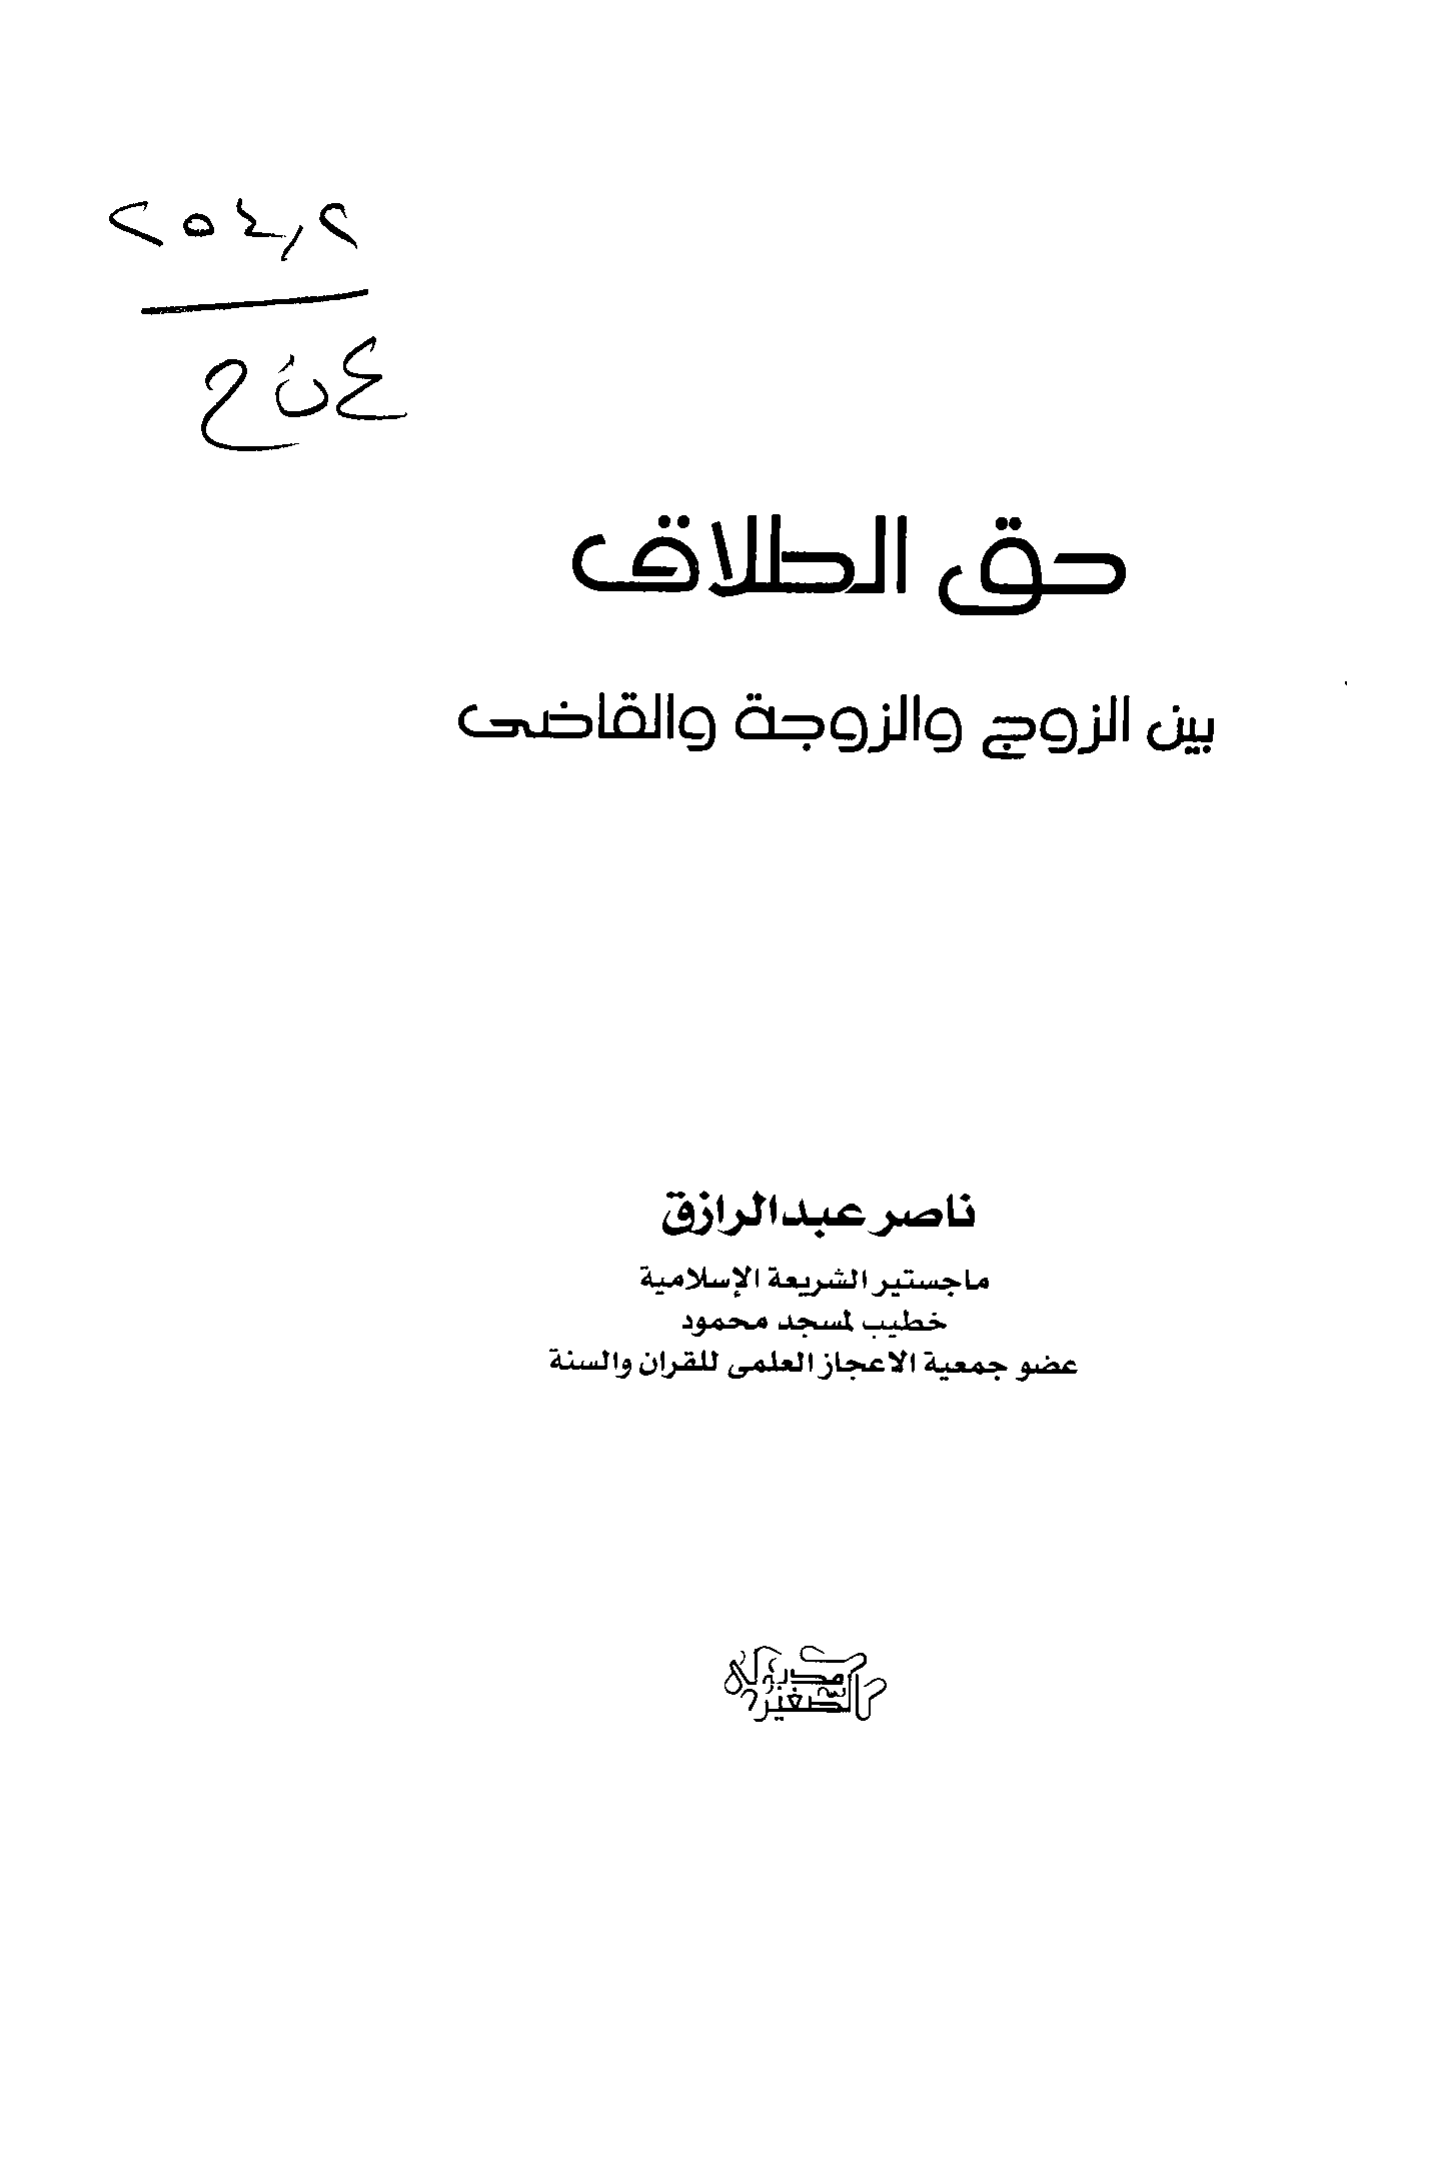 ٢٥٤,٢
ع ن ح
حق الطلاق
بين الزوج والزوجة والقاضى
ناصر عبدالرازق
ماجستير الشريعة الإسلامية
خطيب لمسجد محمود
عضو جمعية الاعجاز العلمى للقران والسنة
مدبولى
الصغير